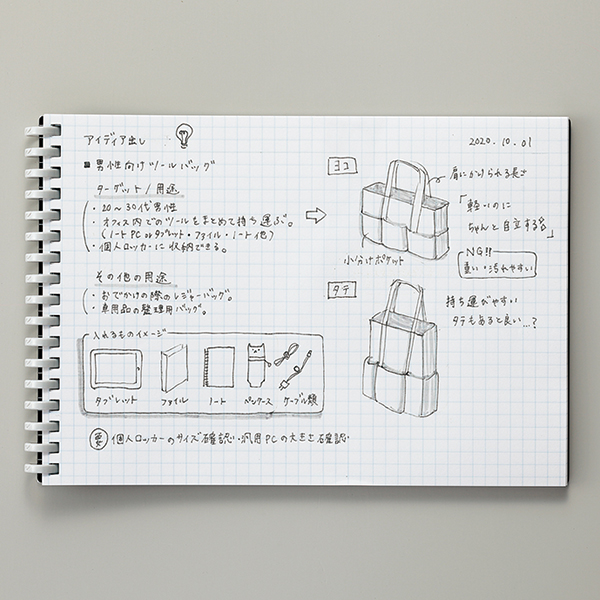 アイディア出し
2020.10.01
■男性向けツールバッグ
ターゲット/用途
・20〜30代男性
・オフィス内でのツールをまとめて持ち運ぶ。
(ノートPC orタブレット・ファイル・ノート他)
・個人ロッカーに収納できる。
その他の用途
・おでかけの際のレジャーバッグ。
・車用品の整理用バッグ。
入れるものイメージ
タブレット ファイル ノート ペンケース ケーブル類
要 個人ロッカーのサイズ確認・汎用PCの大きさ確認
ヨコ
肩にかけられる長さ
「軽いのに
ちゃんと自立する」
小分けポケット
NG!!
重い・汚れやすい
タテ
持ち運びやすい
タテもあると良い…?